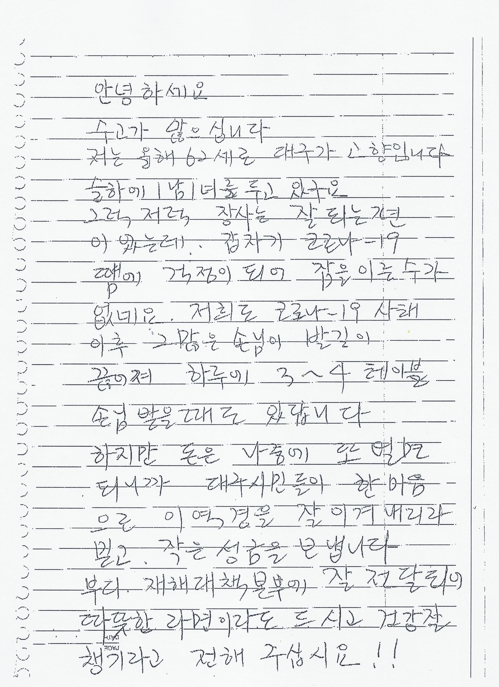 안녕하세요
수고가 많으십니다
저는 올해 62세로 대구가 고향입니다
슬하에 1남 1녀를 두고 있구요
그럭 저럭 장사는 잘 되는편
이 였는데. 갑자기 코로나-19
땜에 걱정이 되어 잠을 이룰수가
없네요. 저희도 코로나-19 사태
이후 그많은 손님이 발길이
끊어져 하루에 3~4 테이블
손님 받을때도 있답니다
하지만 돈은 나중에 또 벌면
되니까 대구시민들이 한마음
으로 이역경을 잘 이겨 내리라
믿고. 작은 성금을 보냅니다
부디. 재해대책본부에 잘 전달되어
따뜻한 라면이라도 드시고 건강잘
챙기라고 전해 주십시요!!